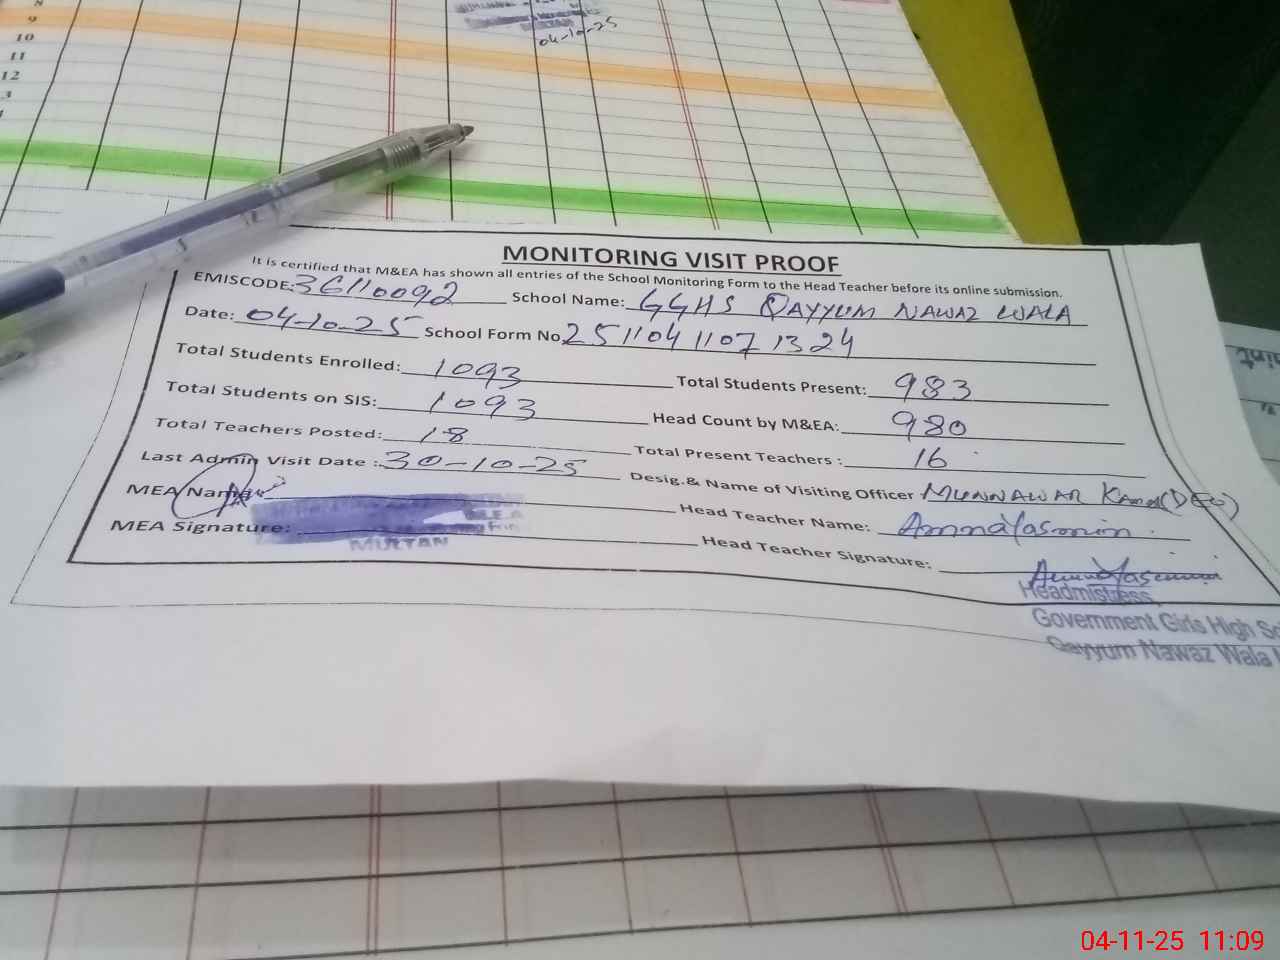 8
9
10
11
12
3
MULTAN
04-10-25
MONITORING VISIT PROOF
It is certified that M&EA has shown all entries of the School Monitoring Form to the Head Teacher before its online submission.
EMISCODE: 36110092 School Name: GGHS QAYYUM NAWAZ WALA
Date: 04-10-25 School Form No 2511041107 1324
Total Students Enrolled: 1093 Total Students Present: 983
Total Students on SIS: 1093 Head Count by M&EA: 980
Total Teachers Posted: 18 Total Present Teachers : 16
Last Admin Visit Date : 30-10-25 Desig.& Name of Visiting Officer MUNNAWAR Kamal (DEO)
MEA Name: Head Teacher Name: Amna Yasmin
MEA Signature: MULTAN Head Teacher Signature: Amna Yasmin
Headmistress
Government Girls High Sc
Qayyum Nawaz Wala
04-11-25 11:09